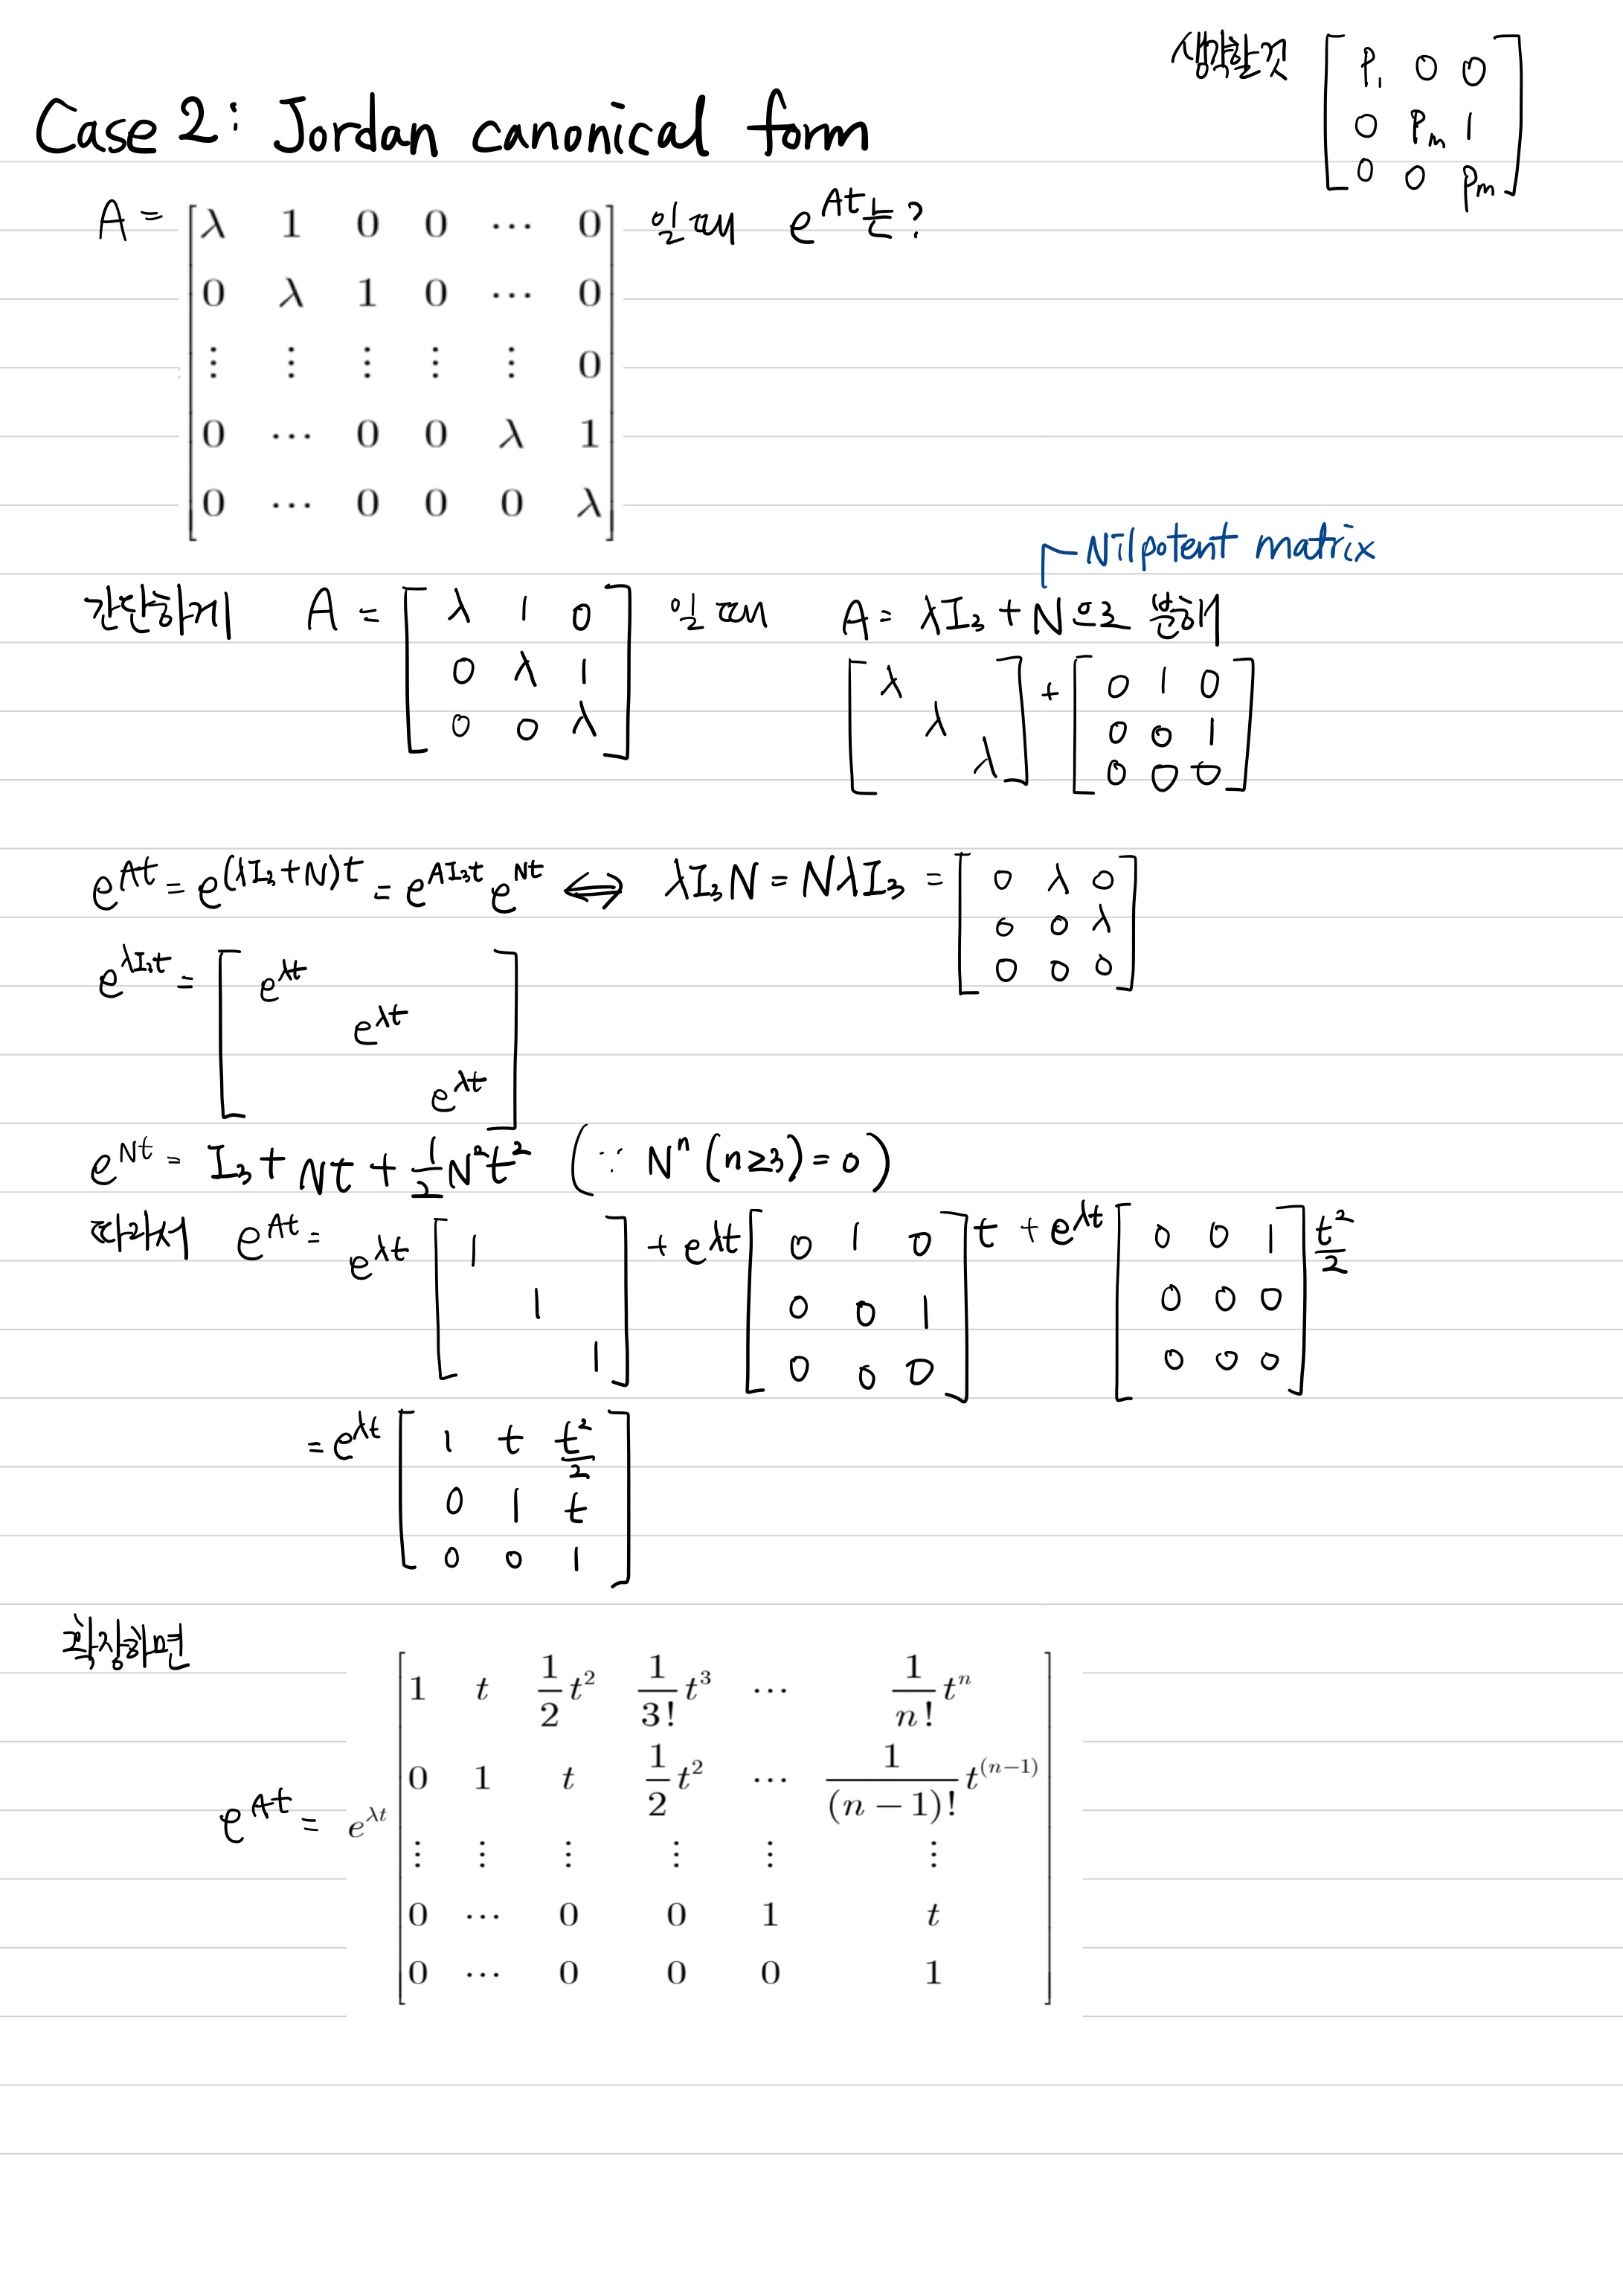 생각할것 [P₁ 0 0
0 Pₘ 1
0 0 Pₘ]
Case 2: Jordan canonical form
A = [λ 1 0 0 ⋯ 0 일때 e^{At}는?
0 λ 1 0 ⋯ 0
⋮ ⋮ ⋮ ⋮ ⋮ 0
0 ⋯ 0 0 λ 1
0 ⋯ 0 0 0 λ]
Nilpotent matrix
간단하게 A = [λ 1 0 일때 A = λI₃ + N으로 분해
0 λ 1
0 0 λ]
[λ
λ
λ] + [0 1 0
0 0 1
0 0 0]
e^{At} = e^{(λI₃+N)t} = e^{AI₃t} e^{Nt} ⟺ λI₃N = NλI₃ = [0 λ 0
0 0 λ
0 0 0]
e^{λI₃t} = [e^{λt}
e^{λt}
e^{λt}]
e^{Nt} = I₃ + Nt + \frac{1}{2}N²t² (∵ Nⁿ (n≥3) = 0)
따라서 e^{At} = e^{λt} [1
1
1] + e^{λt} [0 1 0
0 0 1
0 0 0] t + e^{λt} [0 0 1
0 0 0
0 0 0] \frac{t²}{2}
= e^{λt} [1 t \frac{t²}{2}
0 1 t
0 0 1]
확장하면
e^{At} = e^{λt} [1 t \frac{1}{2}t² \frac{1}{3!}t³ ⋯ \frac{1}{n!}tⁿ
0 1 t \frac{1}{2}t² ⋯ \frac{1}{(n−1)!}t^{(n−1)}
⋮ ⋮ ⋮ ⋮ ⋮ ⋮
0 ⋯ 0 0 1 t
0 ⋯ 0 0 0 1]